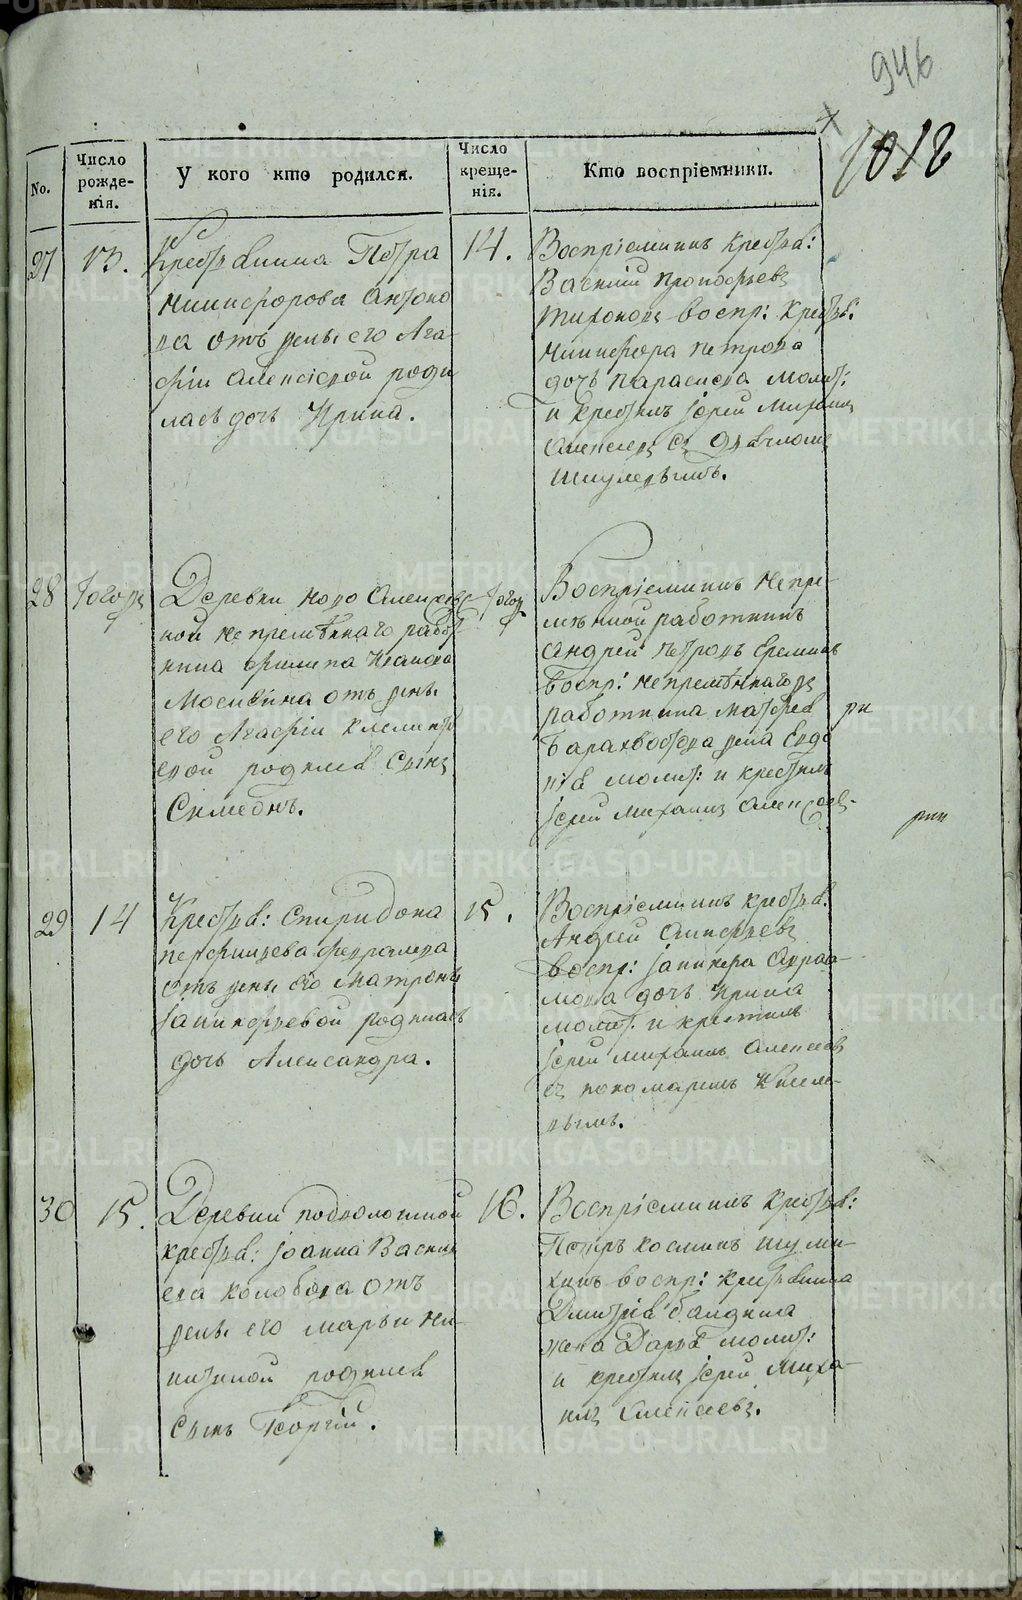 946
1018
No.
Число рожде-нія.
У кого кто родился.
Число креще-нія.
Кто воспріемники.
27
13.
Крестьянина Петра
Никифорова Антоно
ва отъ жены его Ага-
фіи Алексіевой роди
лась дочь Ирина.
14.
Воспріемникъ крестья:
Василій Прокофьевъ
воспр: крестья:
Никифора Петрова
дочь Параскева молит:
и крестилъ іерей Михаилъ
Алексеевъ съ
28
Тогожъ
Деревни Ново Алексеевс
кой непремѣннаго работ
ника Филипа Иванова
Мосивина отъ жены
его Агафіи Климинть
евой родился сынъ
Симеонъ.
Тогожъ
Воспріемникъ непре-
мѣнной работникъ
Андрей Петровъ Ереминъ
воспр: непремѣннаго
работника Матфея
жена Евдо
кія молит: и крестилъ
іерей Михаилъ Алексеев-
29
14
Крестья: Спиридона
отъ жены его Матроны
родилась
дочь Александра.
15.
Воспріемникъ крестья:
Андрей
воспр:
дочь Ирина
молит: и крестилъ
іерей Михаилъ Алексеевъ
съ пономаремъ Киселе-
вымъ.
30
15.
Деревни Подволошной
крестья: Іоанна Васили
ева Колобова отъ
жены его Марьи Ни-
китиной родился
сынъ Георгій.
16.
Воспріемникъ крестья:
Петръ Косминъ Шуми-
хинъ воспр: крестьянина
Дмитрія Балдина
жена Дарья молит:
и крестилъ іерей Миха-
илъ Алексеевъ.